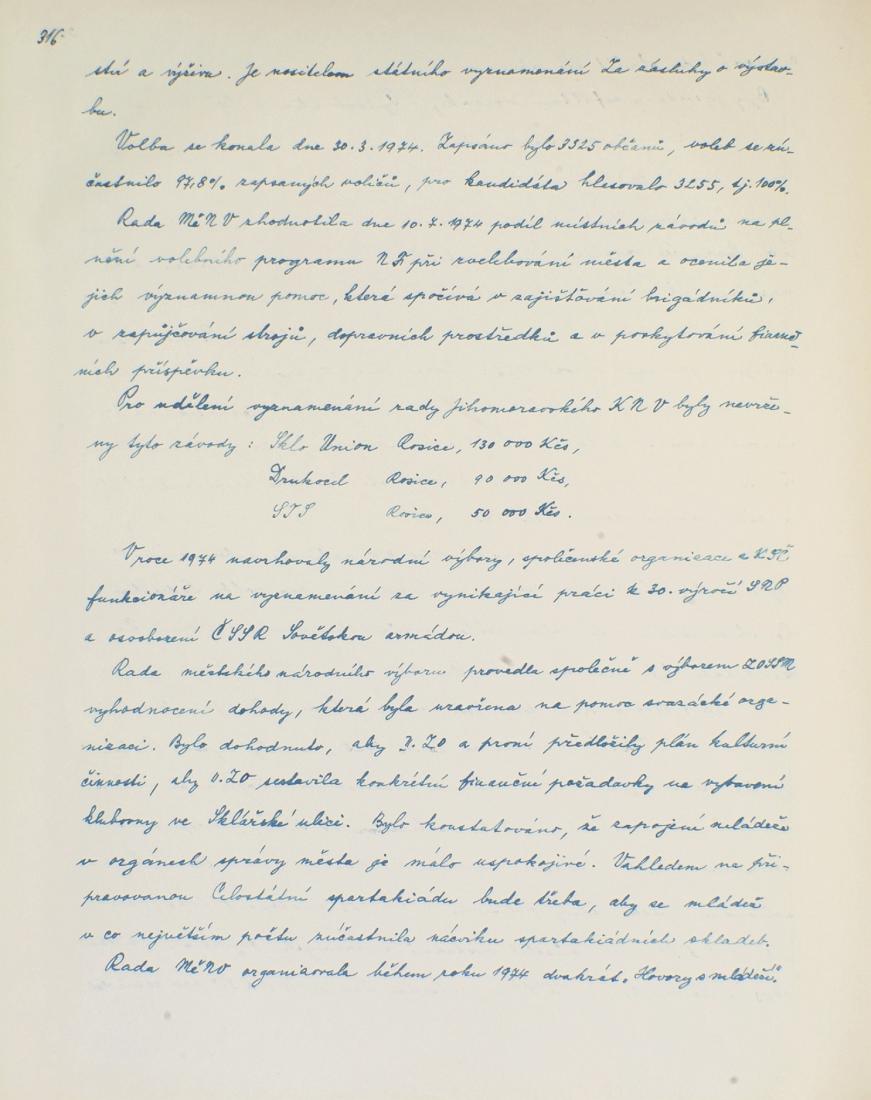 316
ství a výživu. Je nositelem státního vyznamenání Za zásluhy o výstav-
bu.
Volba se konala dne 30.3.1974. Zapsáno bylo 3325 občanů, voleb se zú-
častnilo 97,8% zapsaných voličů, pro kandidáta hlasovalo 3255, tj. 100%.
Rada MěNV zhodnotila dne 10.7.1974 podíl místních závodů na pl-
nění volebního programu NF při zvelebování města a ocenila je-
jich významnou pomoc, která spočívá v zajišťování brigádníků,
v zapůjčování strojů, dopravních prostředků a v poskytování finanč-
ních příspěvků.
Pro udělení vyznamenání rady Jihomoravského KNV byly navrže-
ny tyto závody: Sklo Union Rosice, 130 000 Kčs,
Drukocel Rosice, 90 000 Kčs,
STS Rosice, 50 000 Kčs.
V roce 1974 navrhovaly národní výbory, společenské organizace a KSČ
funkcionáře na vyznamenání za vynikající práci k 30. výročí SNP
a osvobození ČSSR Sovětskou armádou.
Rada městského národního výboru provedla společně s výborem ZOSSM
vyhodnocení dohody, která byla uzavřena na pomoc svazácké orga-
nizaci. Bylo dohodnuto, aby II. ZO a první předložily plán kulturní
činnosti, aby II. ZO sestavila konkrétní finanční požadavky na vybavení
klubovny ve Sklářské ulici. Bylo konstatováno, že zapojení mládeže
v orgánech správy města je málo uspokojivé. Vzhledem na při-
pravovanou Celostátní spartakiádu bude třeba, aby se mládež
v co největším počtu zúčastnila nácviku spartakiádních skladeb.
Rada MěNV organizovala během roku 1974 dvakrát „Hovory s mládeží“.